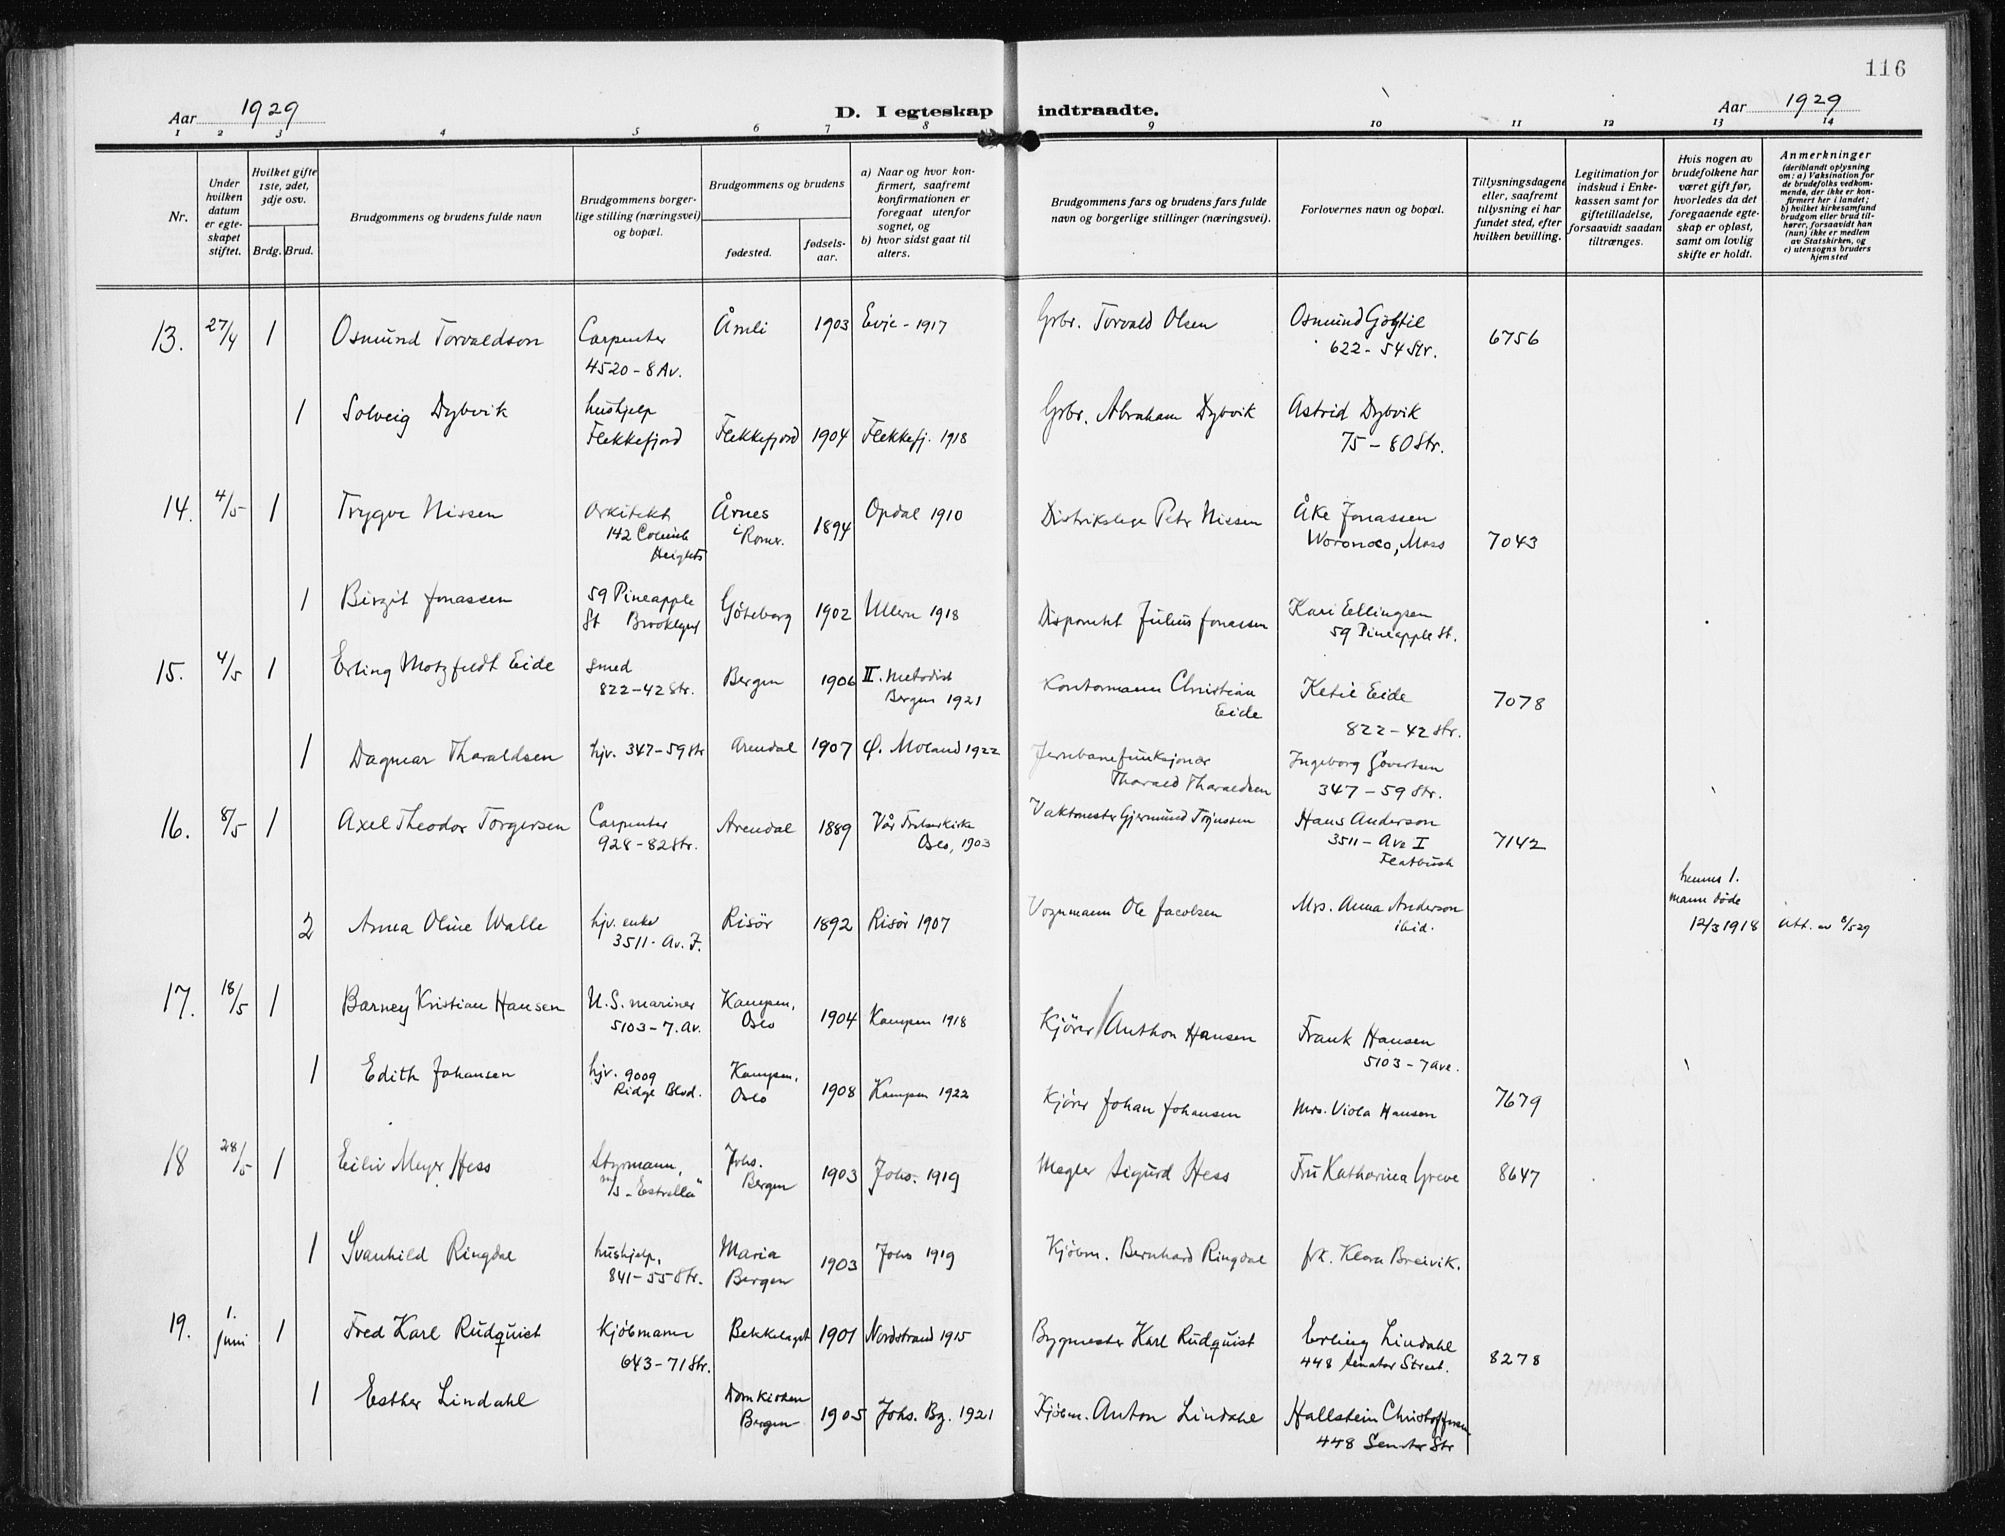 116
Aar 1929
D. I egteskap indtraadte.
Aar 1929
1 2 3 4 5 6 7 8 9 10 11 12 13 14
Nr.
Under hvilken datum er egteskapet stiftet.
Hvilket gifte 1ste, 2det, 3dje osv.
Brdg. Brud.
Brudgommens og brudens fulde navn
Brudgommens borgerlige stilling (næringsvei) og bopæl.
Brudgommens og brudens
fødested.
fødselsaar.
a) Naar og hvor konfirmert, saafremt konfirmationen er foregaat utenfor sognet, og
b) hvor sidst gaat til alters.
Brudgommens fars og brudens fars fulde navn og borgerlige stillinger (næringsvei).
Forlovernes navn og bopæl.
Tillysningsdagene eller, saafremt tillysning ei har fundet sted, efter hvilken bevilling.
Legitimation for indskud i Enkekassen samt for giftetilladelse, forsaavidt saadan tiltrænges.
Hvis nogen av brudefolkene har været gift før, hvorledes da det foregaaende egteskap er opløst, samt om lovlig skifte er holdt.
Anmerkninger
(deriblandt oplysning om: a) Vaksination for de brudefolks vedkommende, der ikke er konfirmert her i landet; b) hvilket kirkesamfund brudgom eller brud tilhører, forsaavidt han (hun) ikke er medlem av Statskirken, og c) utensogns bruders hjemsted
13. 27/4 1 Osmund Torvaldson Carpenter Åmli 1903 Evje - 1917 Grbr. Torvald Olsen Osmund 6756
4520 - 8 Av. 622 - 54 Str.
1 Solveig Dybvik hushjelp Flekkefjord 1904 Flekkefj. 1918 Grbr. Abraham Dybvik Astrid Dybvik
Flekkefjord 75 - 80 Str.
14. 4/5 1 Trygve Nissen Arkitekt Årnes 1894 Opdal 1910 Distriktslege Petr Nissen Åke Jonassen 7043
142 Columb Heights i Romr. Woronoco, Mass
1 Birgit Jonassen 59 Pineapple Göteborg 1902 Ullern 1918 Disponent Julius Jonassen Kari Ellingsen
St Brooklyn 59 Pineapple St.
15. 4/5 1 Erling Motzfeldt Eide smed Bergen 1906 II. metodist Kontormann Christian Ketil Eide 7078
822 - 42 Str. Bergen 1921 Eide 822 - 42 Str.
1 Dagmar Tharaldsen hjv. 347 - 59 Str Arendal 1907 Ø. Moland 1922 Jernbanefunksjonær Ingeborg Govertsen
Tharald Tharaldsen 347 - 59 Str.
16. 8/5 1 Axel Theodor Torgersen Carpenter Arendal 1889 Vår Frelserkirke Vaktmester Gjermund Hans Anderson 7142
928 - 82 Str. Oslo, 1903 3511 - Ave I
Flatbush
hennes 1.
mann døde
2 Anna Oline Walle hjv. enke Risör 1892 Risör 1907 Vognmann Ole Jacobsen Mrs. Anna Anderson 12/3 1918 Att. av 8/5 29
3511 - Av. I. ibid.
17. 18/5 1 Barney Kristian Hansen U.S. mariner Kampen, 1904 Kampen 1918 Kjörer Anthon Hansen Frank Hansen
5103 - 7. Av. Oslo 5103 - 7 Ave.
1 Edith Johansen hjv. 9009 Kampen, 1908 Kampen 1922 Kjörer Johan Johansen Mrs. Viola Hansen 7679
Ridge Blvd. Oslo
18 28/5 1 Eiliv Meyer Hess Styrmann, Johs. 1903 Johs. 1919 Megler Sigurd Hess Fru Katharina Greve 8647
m/s „Estrella" Bergen
1 Svanhild Ringdal hushjelp, Maria 1903 Johs 1919 Kjöbm. Bernhard Ringdal frk. Klara Breivik.
841 - 55 Str. Bergen
19. 1. Juni 1 Fred Karl Rudquist Kjöbmann Bekkelaget 1901 Nordstrand 1915 Bygmester Karl Rudquist Erling Lindahl 8278
643 - 71 Str. 448 Senator Street.
1 Esther Lindahl Domkirken 1905 Johs. Bg. 1921 Kjöbm. Anton Lindahl Hallstein Christoffersen
Bergen 448 Senator Str